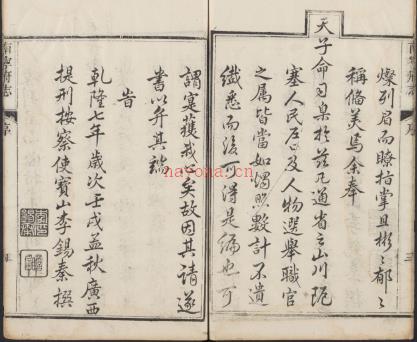 燦列眉而瞭指掌且彬〻郁〻
稱偹美焉余奉
天子命司臬於茲凡通省之山川阨
塞人民户口及人物選舉職官
之属皆當如燭照數計不遺
纎悉而後可得是編也可
謂寔獲我心矣故因其請遂
書以弁其端
旹
乾隆七年歲次壬戌孟秋廣西
提刑按察使寶山李錫秦撰
南寧府志
序
三
hytung.cn